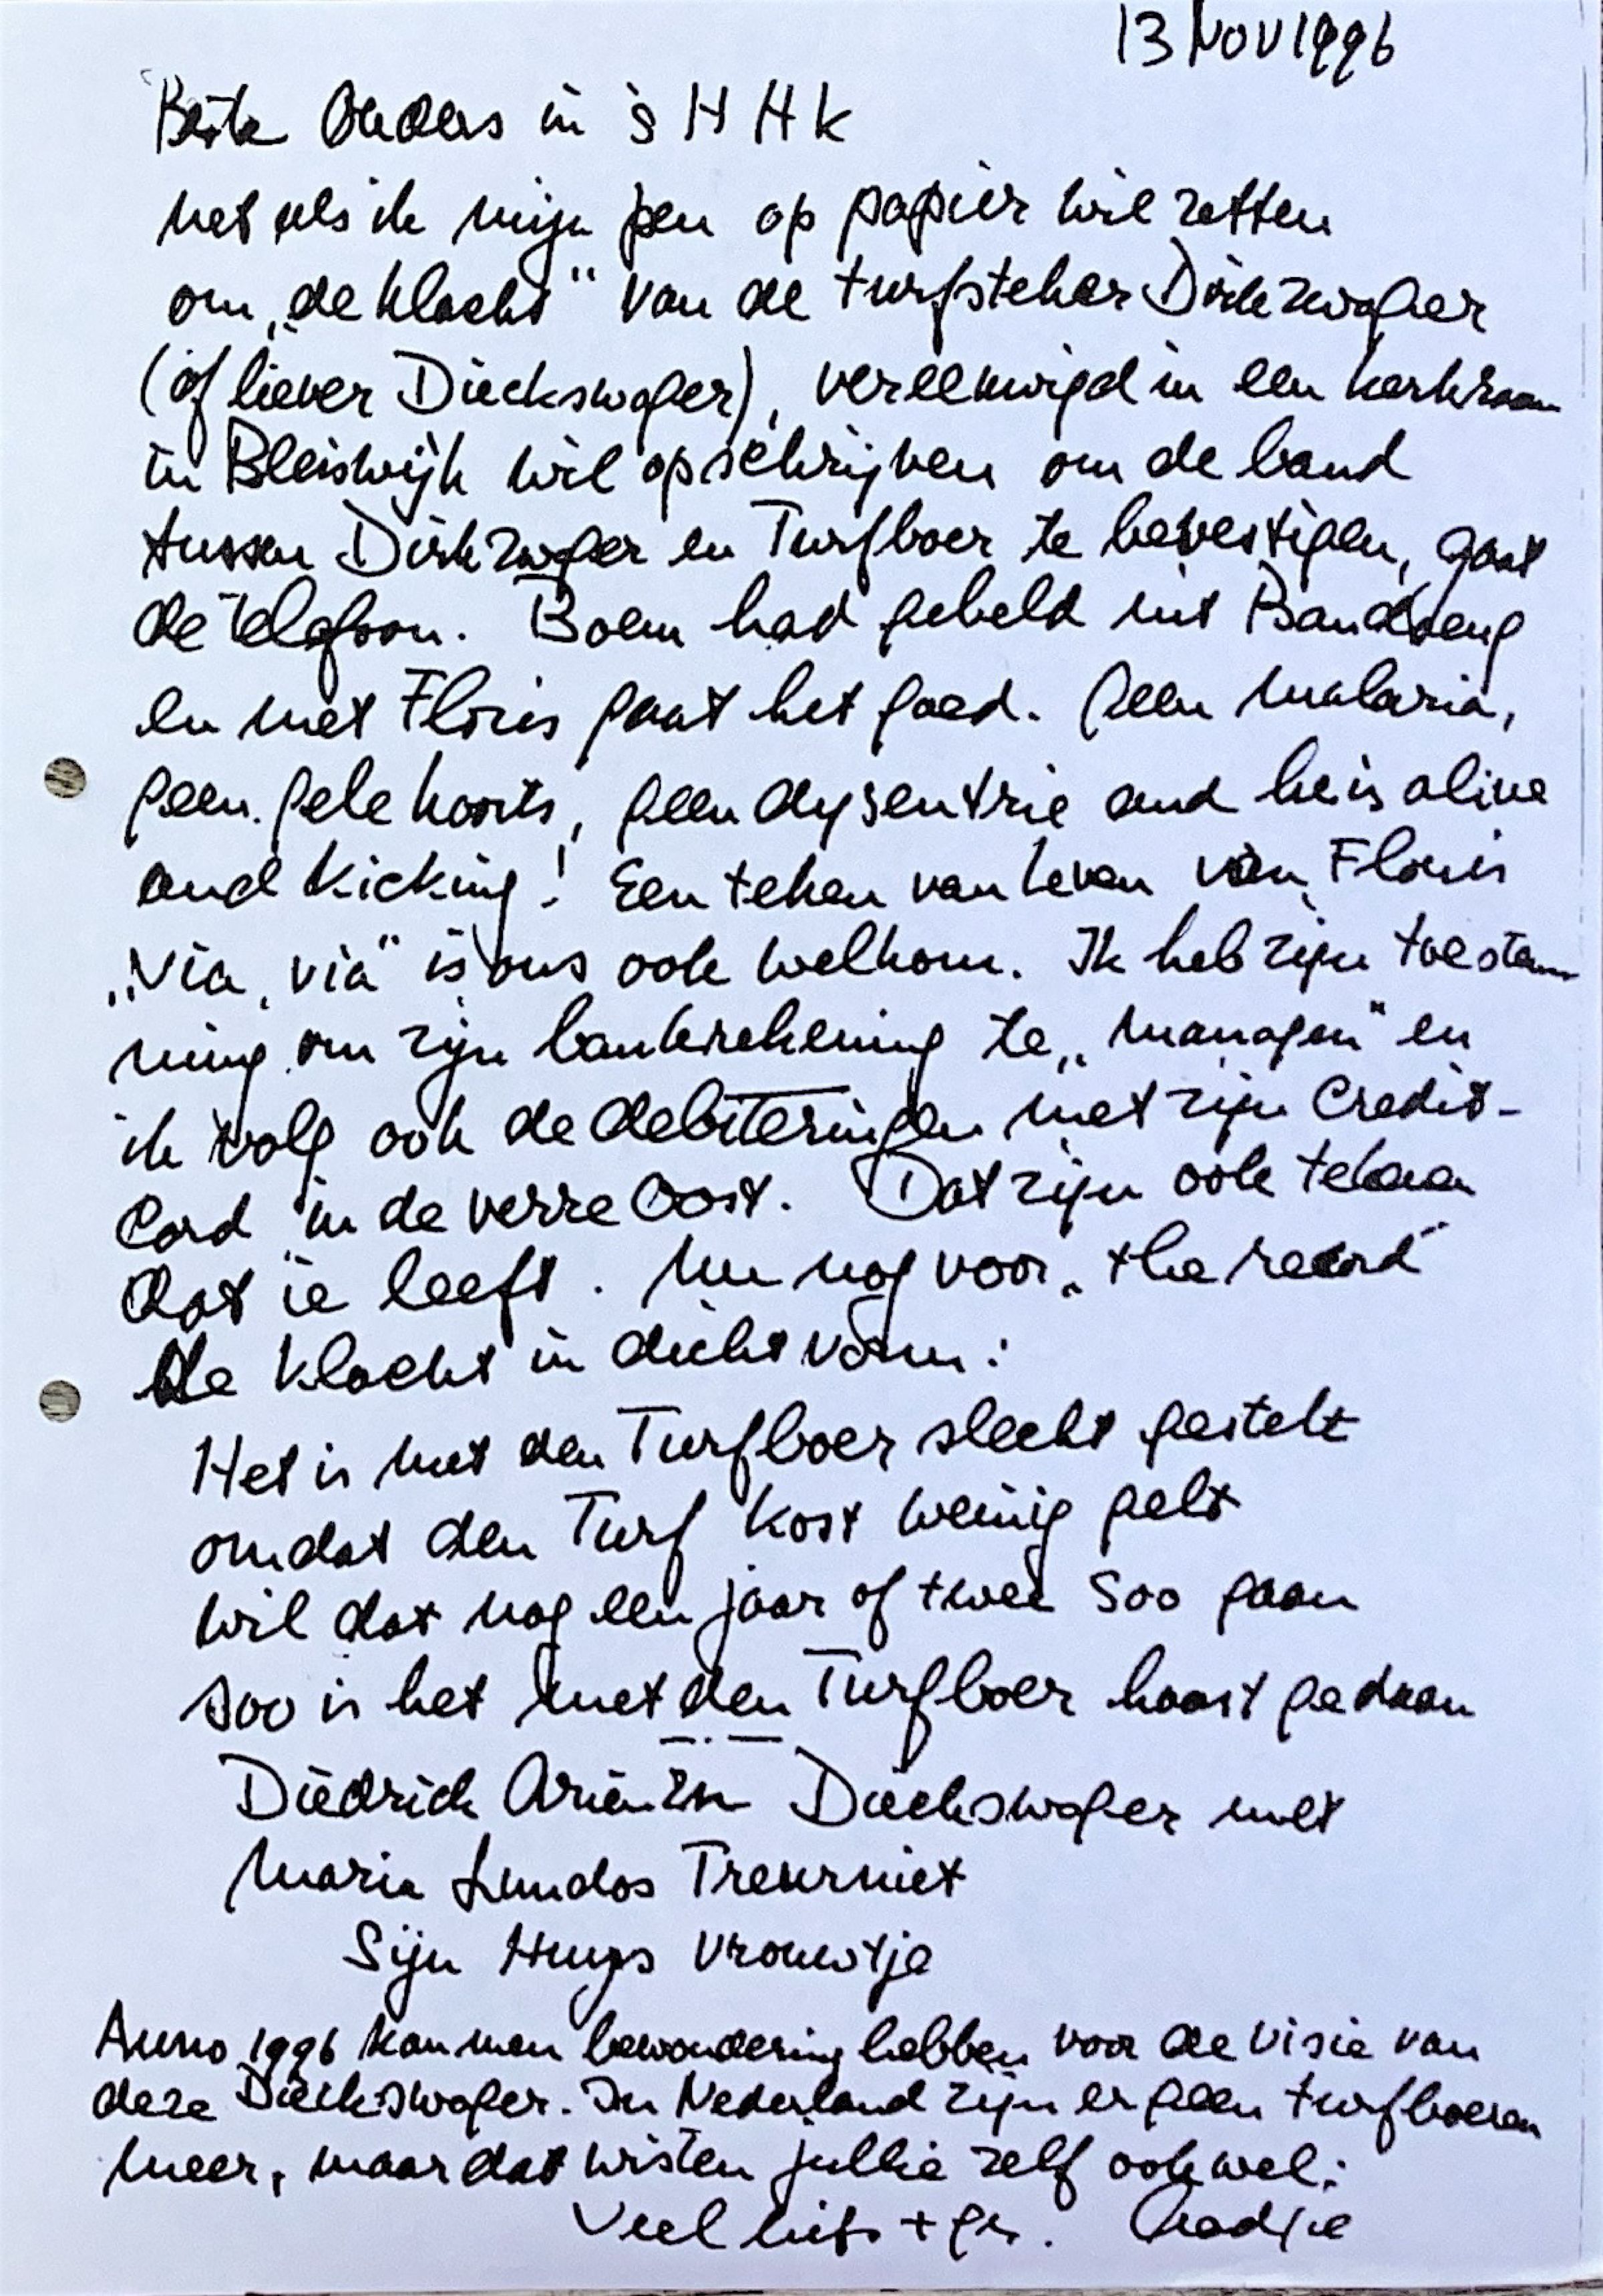 13 Nov 1996
Beste Ouders in 's H H K
net als ik mijn pen op papier wil zetten
om „de klacht" van de turfsteker Dirkzwager
(of liever Dieckswager), vereeuwigd in een kerkraam
in Bleiswijk wil opschrijven om de band
tussen Dirkzwager en Turfboer te bevestigen, gaat
de telefoon. Boem had gebeld uit Bandoeng
en met Floris gaat het goed. Geen malaria,
geen gele koorts, geen dysentrie and he is alive
and kicking! Een teken van leven van Floris
„via, via" is ons ook welkom. Ik heb zijn toestem
ming om zijn bankrekening te „managen" en
ik volg ook de debiteringen met zijn Credit-
Card in de verre Oost. Dat zijn ook tekenen
dat ie leeft. Nu nog voor „the record"
de klacht in dichtvorm:
Het is met den Turfboer slecht gestelt
omdat den Turf kost weinig gelt
wil dat nog een jaar of twee soo gaan
soo is het met den Turfboer haast gedaan
Diedrich Ariënzn Dieckswager met
Maria Treurniet
Sijn Huys vrouwtje
Anno 1996 kan men bewondering hebben voor de visie van
deze Dieckswager. In Nederland zijn er geen turfboeren
meer, maar dat wisten jullie zelf ook wel:
Veel liefs + gr.